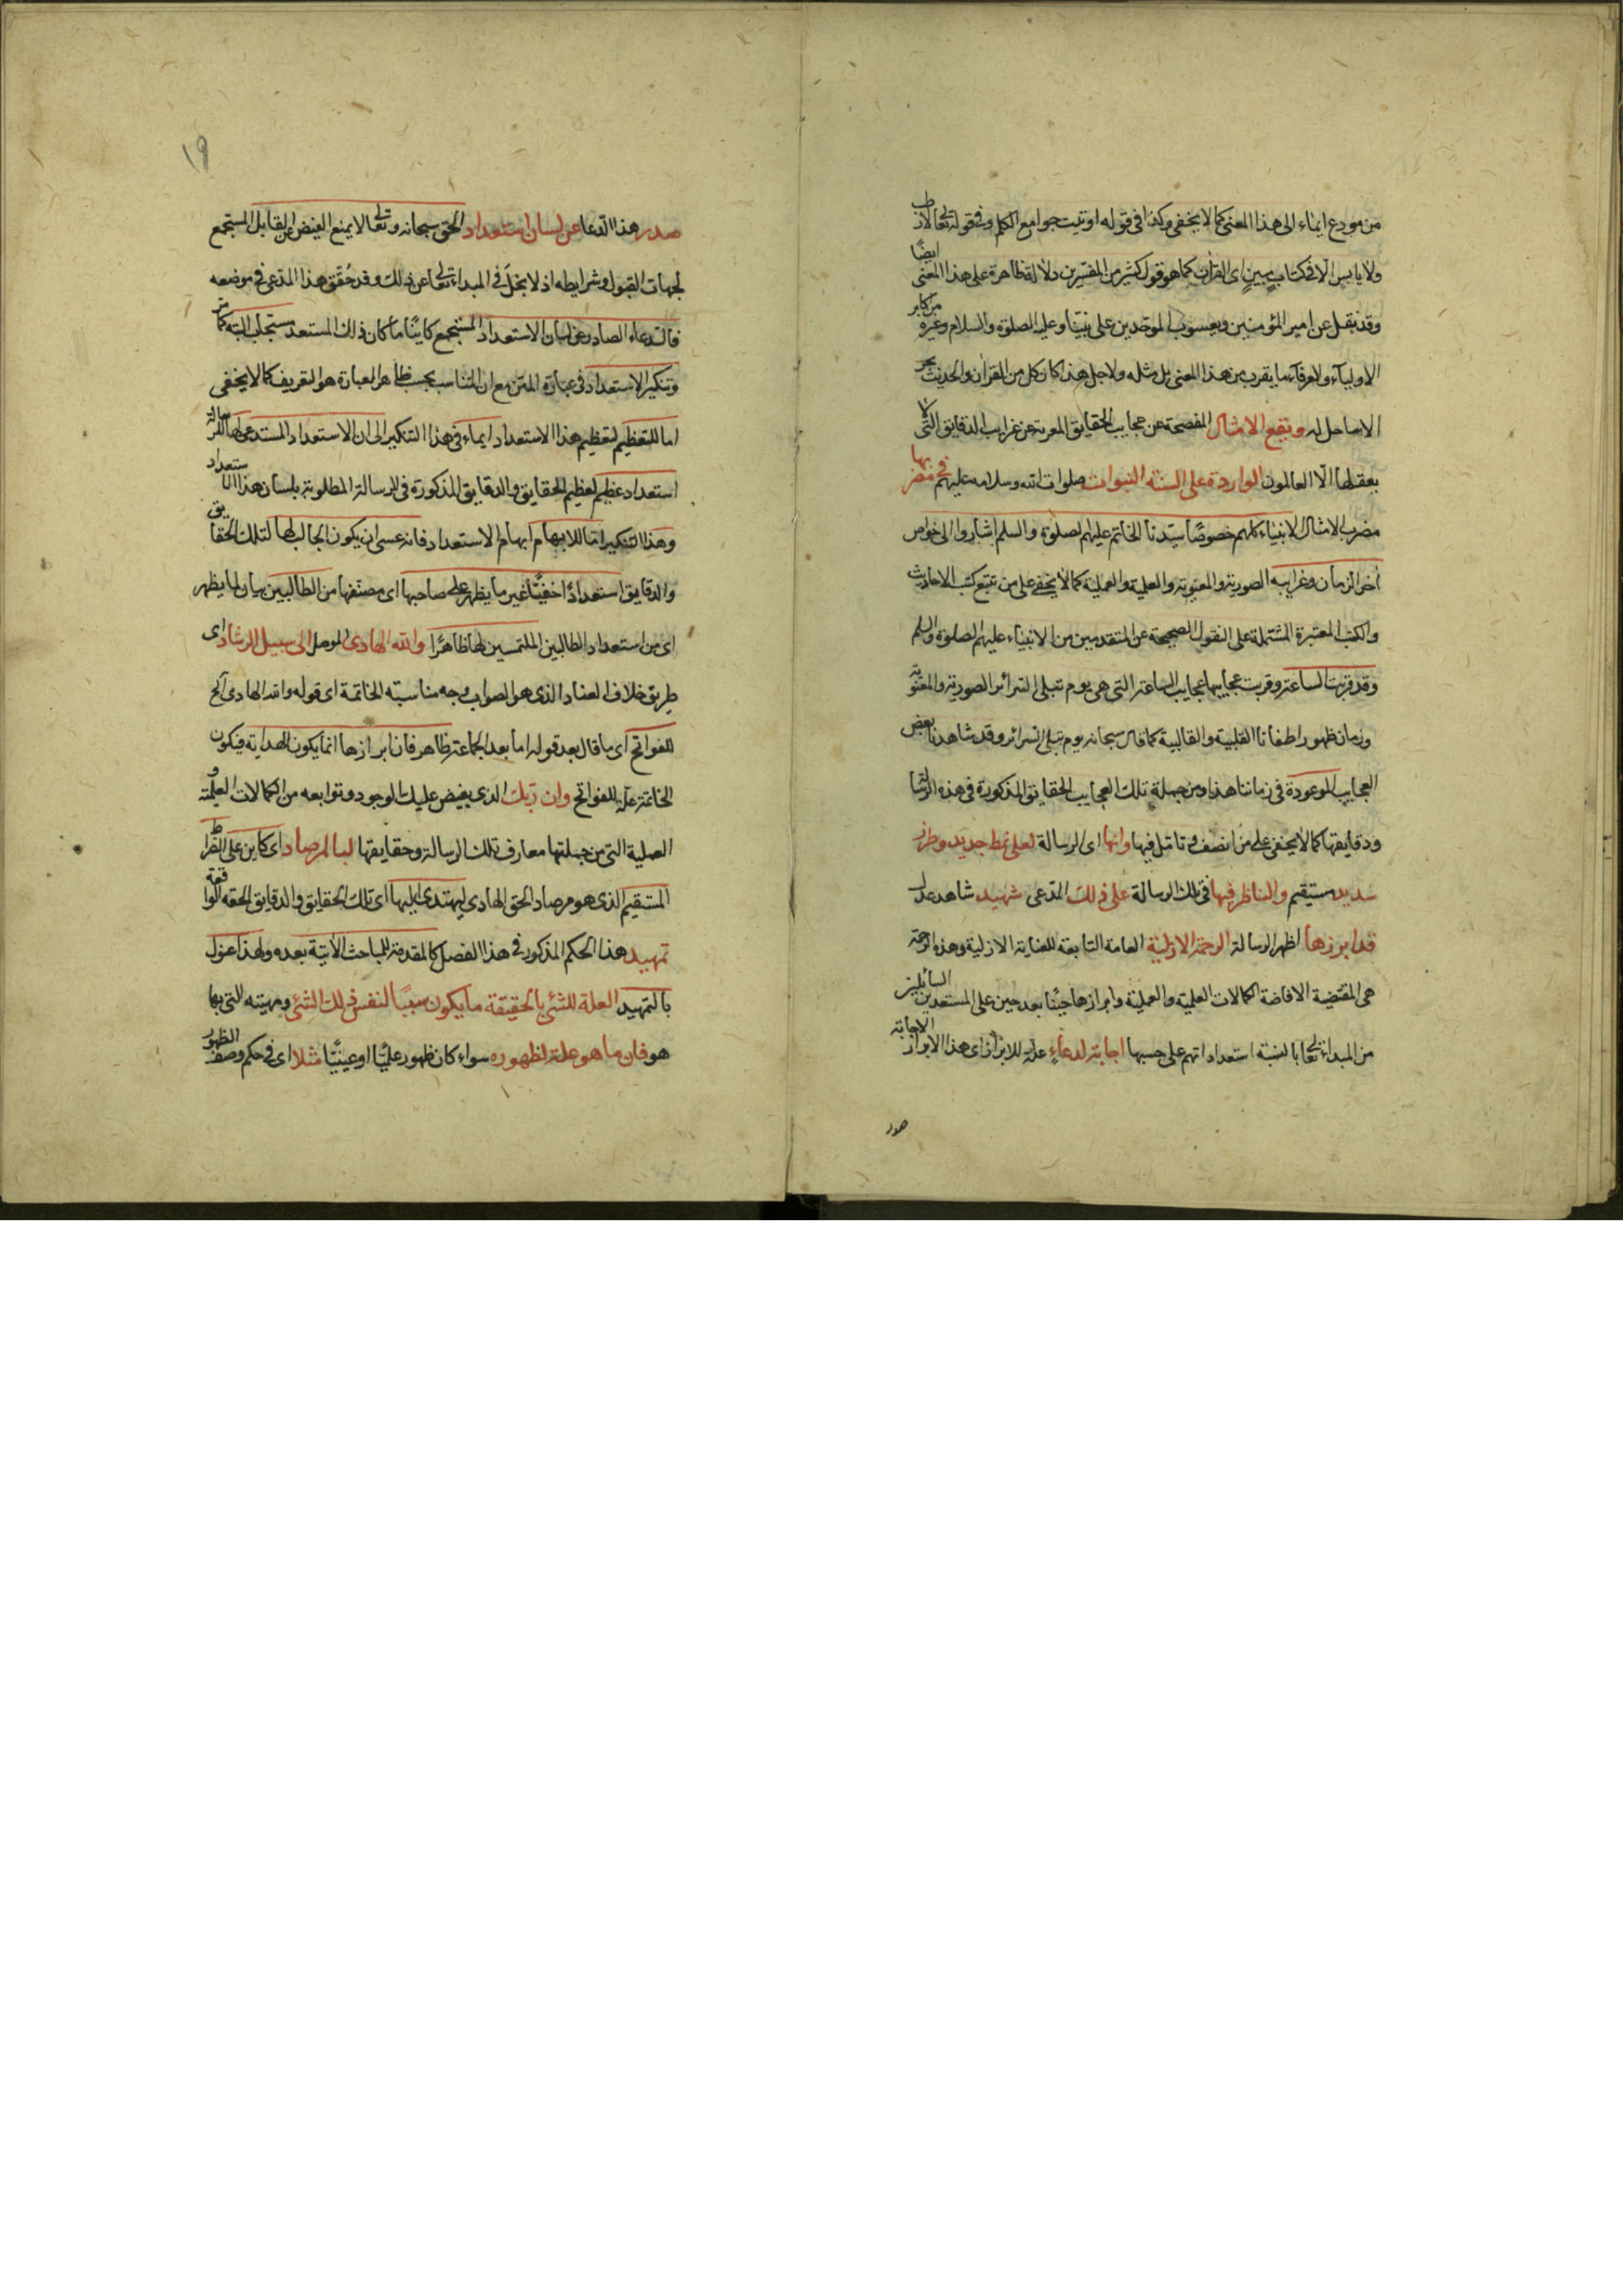 من مودع ايماء الى هذا المعنى كما لا يخفى وكذا فى قوله اوتيت جوامع الكلم وفى قوله تعالى لا رطب
ولا يابس الا فى كتاب مبين اى القرآن كما هو قول كثير من المفسرين دلالة ظاهرة على هذا المعنى ايضًا
وقد نقل عن امير المؤمنين ويعسوب الموحدين على نبينا وعليه الصلوة والسلام وغيره من اكابر
الاولياء والعرفاء ما يقرب من هذا المعنى بل مثله ولاجل هذا كان كل من القران والحديث بحر
لا ساحل له وبقع الامثال المفصحة عن عجايب الحقايق المعربة عن غرايب الدقايق التى لا
يعقلها الا العالمون الواردة على السنة النبوات صلوات الله وسلامه عليهم فى مضربها
مضرب الامثال الانبياء كلهم خصوصًا سيدنا الخاتم عليهم الصلوة والسلم اشاروا الى خواص
اخر الزمان وغرايبه الصورية والمعنوية والعلمية والعملية كما لا يخفى على من تتبع كتب الاحاديث
والكتب المعتبرة المشتملة على النقول الصحيحة عن المتقدمين من الانبياء عليهم الصلوة والسلم
وقد قربت الساعة وقربت عجايبها عجايب الساعة التى هى يوم تبلى السرائر الصورية والمعنوية
وزمان ظهور اطفانا القلبية والقالبية كما قال سبحانه يوم تبلى السرائر وقد شاهدنا بعض
العجايب الموعودة فى زماننا هذا ومن جملة تلك العجايب الحقايق المذكورة فى هذه الرسالة
ودقايقها كما لا يخفى على من انصف وتأمل فيها وانها اى الرسالة لعلى نمط جديد وطرز
سديد مستقيم والناظر فيها فى تلك الرسالة على ذلك المدعى شهيد شاهد عدل
قد ابرزها اظهر الرسالة الرحمة الازلية العامة التابعة للعناية الازلية وهذه الرحمة
هى المقتضية الافاضة الكمالات العلمية والعملية وابرازها حينًا بعد حين على المستعدين السائلين
من المبداء تعالى بالسنة استعداداتهم على حسبها اجابة لدعاء علة للابراز اى هذا الابراز لاجابة
صدر
١٩
صدر هذا الدعا عن لسان استعداد الحق سبحانه وتعالى لا يمنع الفيض عن القابل المستجمع
لجهات القبول وشرايطه اذ لا بخل فى المبداء تعالى عن ذلك وقد حُقّق هذا المدعى فى موضعه
فالدعاء الصادر عن لسان الاستعداد المستجمع كاينًا ما كان ذلك المستعد مستجاب البتة كما مر
وتنكير الاستعداد فى عبارة المتن مع ان المناسب بحسب ظاهر العبارة هو التعريف كما لا يخفى
اما للتعظيم لتعظيم هذا الاستعداد ايماء فى هذا التنكير الى ان الاستعداد المستدعى لها للرسالة
استعداد عظيم لعظيم الحقايق والدقايق المذكورة فى الرسالة المطلوبة بلسان هذا الاستعداد
وهذا التنكير اما للابهام ابهام الاستعداد فانه عسى ان يكون الجالب لها لتلك الحقايق
والدقايق استعدادًا خفيًّا غير ما يظهر على صاحبها اى مصنفها من الطالبين بيان لما يظهر
اى من استعداد الطالبين الملتمسين لها ظاهرًا والله الهادى الموصل الى سبيل الرشاد اى
طريق خلاف العناد الذى هو الصواب وجه مناسبته الخاتمة اى قوله والله الهادى الخ
للفواتح اى ما قال بعد قوله اما بعد الجماعة ظاهر فان ابرازها انما يكون الهداية فيكون
الخاتمة علة للفواتح وان ربك الذى يفيض عليك الوجود وتوابعه من الكمالات العلمية و
العملية التى من جملتها معارف تلك الرسالة وحقايقها لبالمرصاد اى كاين على الصراط
المستقيم الذى هو مرصاد الحق الهادى ليهتدى اليها اى تلك الحقايق والدقايق الحقة الواقعة
تمهيد هذا الحكم المذكور فى هذا الفصل كالمقدمة للمباحث الاتية بعده ولهذا عنون
بالتمهيد العلة للشئ بالحقيقة ما يكون سببًا لنفس ذلك الشئ ومهيته التى بها
هو فان ما هو علة لظهوره سواء كان ظهور علميًّا او عينيًّا مثلا اى فى حكم وصف الظهور